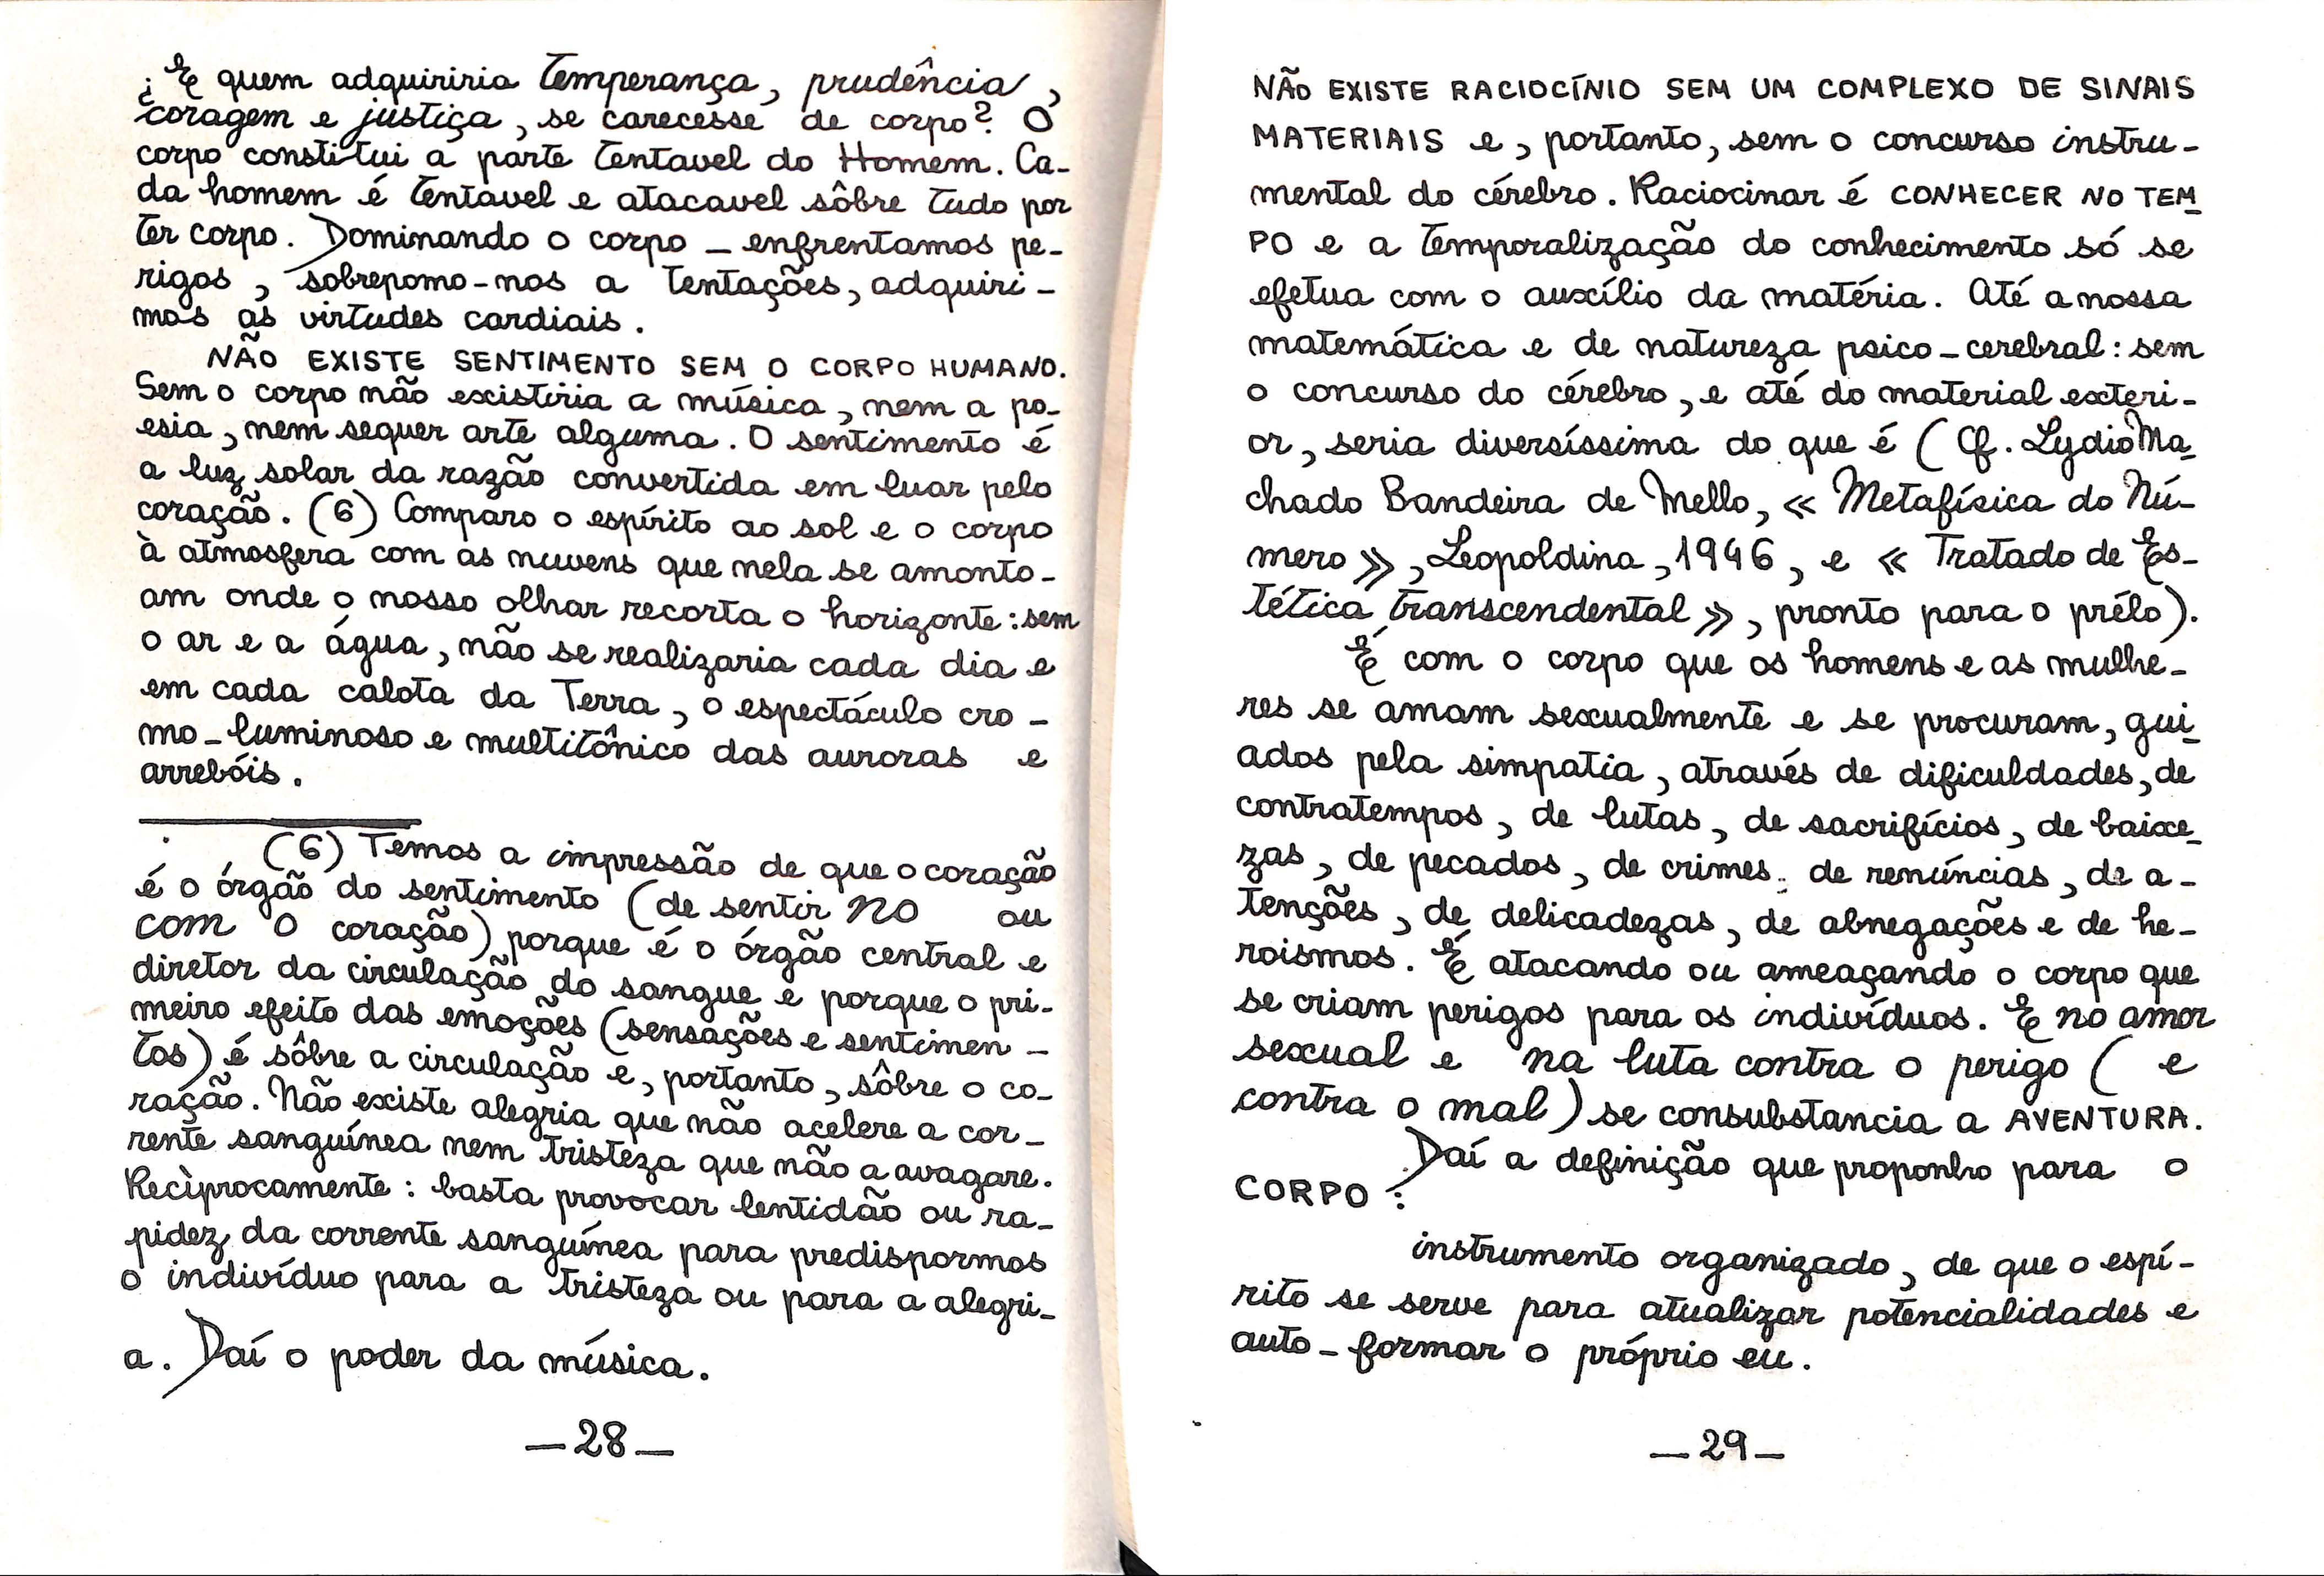 ¿E quem adquiriria temperança, prudência,
coragem e justiça, se carecesse de corpo? O
corpo constitui a parte tentavel do Homem. Ca-
da homem é tentavel e atacavel sôbre tudo por
ter corpo. Dominando o corpo - enfrentamos pe-
rigos, sobrepomo-nos a tentações, adquiri-
mos as virtudes cardiais.
NÃO EXISTE SENTIMENTO SEM O CORPO HUMANO.
Sem o corpo não existiria a música, nem a po-
esia, nem sequer arte alguma. O sentimento é
a luz solar da razão convertida em luar pelo
coração. (6) Comparo o espírito ao sol e o corpo
à atmosfera com as nuvens que nela se amonto-
am onde o nosso olhar recorta o horizonte: sem
o ar e a água, não se realizaria cada dia e
em cada calota da Terra, o espectáculo cro-
mo-luminoso e multitônico das auroras e
arrebóis.
(6) Temos a impressão de que o coração
é o órgão do sentimento (de sentir no ou
com o coração) porque é o órgão central e
diretor da circulação do sangue e porque o pri-
meiro efeito das emoções (sensações e sentimen-
tos) é sôbre a circulação e, portanto, sôbre o co-
ração. Não existe alegria que não acelere a cor-
rente sanguínea nem tristeza que não a avagare.
Recìprocamente: basta provocar lentidão ou ra-
pidez da corrente sanguínea para predispormos
o indivíduo para a tristeza ou para a alegri-
a. Daí o poder da música.
-28-
NÃO EXISTE RACIOCÍNIO SEM UM COMPLEXO DE SINAIS
MATERIAIS e, portanto, sem o concurso instru-
mental do cérebro. Raciocinar é CONHECER NO TEM-
PO e a temporalização do conhecimento só se
efetua com o auxílio da matéria. Até a nossa
matemática e de natureza psico-cerebral: sem
o concurso do cérebro, e até do material exteri-
or, seria diversíssima do que é (Cf. Lydio Ma-
chado Bandeira de Mello, « Metafísica do Nú-
mero », Leopoldina, 1946, e « Tratado de Es-
tética transcendental », pronto para o prélo).
É com o corpo que os homens e as mulhe-
res se amam sexualmente e se procuram, gui-
ados pela simpatia, através de dificuldades, de
contratempos, de lutas, de sacrifícios, de baixe-
zas, de pecados, de crimes, de renúncias, de a-
tenções, de delicadezas, de abnegações e de he-
roismos. É atacando ou ameaçando o corpo que
se criam perigos para os indivíduos. E no amor
sexual e na luta contra o perigo ( e
contra o mal) se consubstancia a AVENTURA.
Daí a definição que proponho para o
CORPO:
instrumento organizado, de que o espí-
rito se serve para atualizar potencialidades e
auto-formar o próprio eu.
-29-